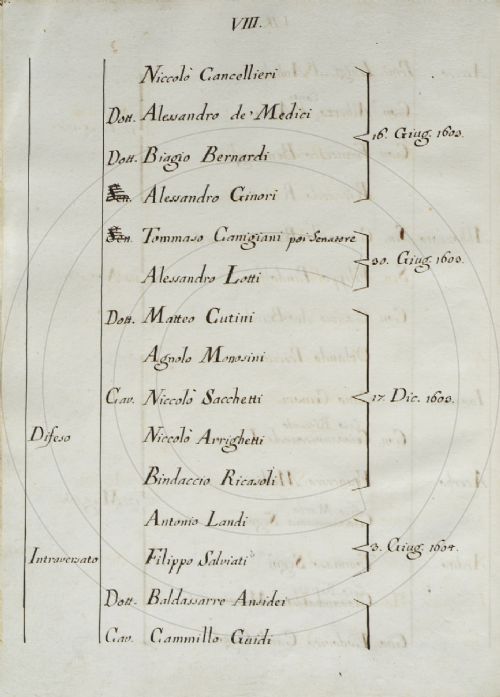 VIII.
Niccolò Cancellieri
Dott. Alessandro de' Medici
16. Giug. 1603.
Dott. Biagio Bernardi
Alessandro Ginori
Tommaso Canigiani poi Senatore
30. Giug. 1603.
Alessandro Lotti
Dott. Matteo Cutini
Agnolo Monosini
Cav. Niccolò Sacchetti
17. Dic. 1603.
Difeso Niccolò Arrighetti
Bindaccio Ricasoli
Antonio Landi
3. Giug. 1604.
Intraversato Filippo Salviati
Dott. Baldassarre Ansidei
Cav. Cammillo Guidi